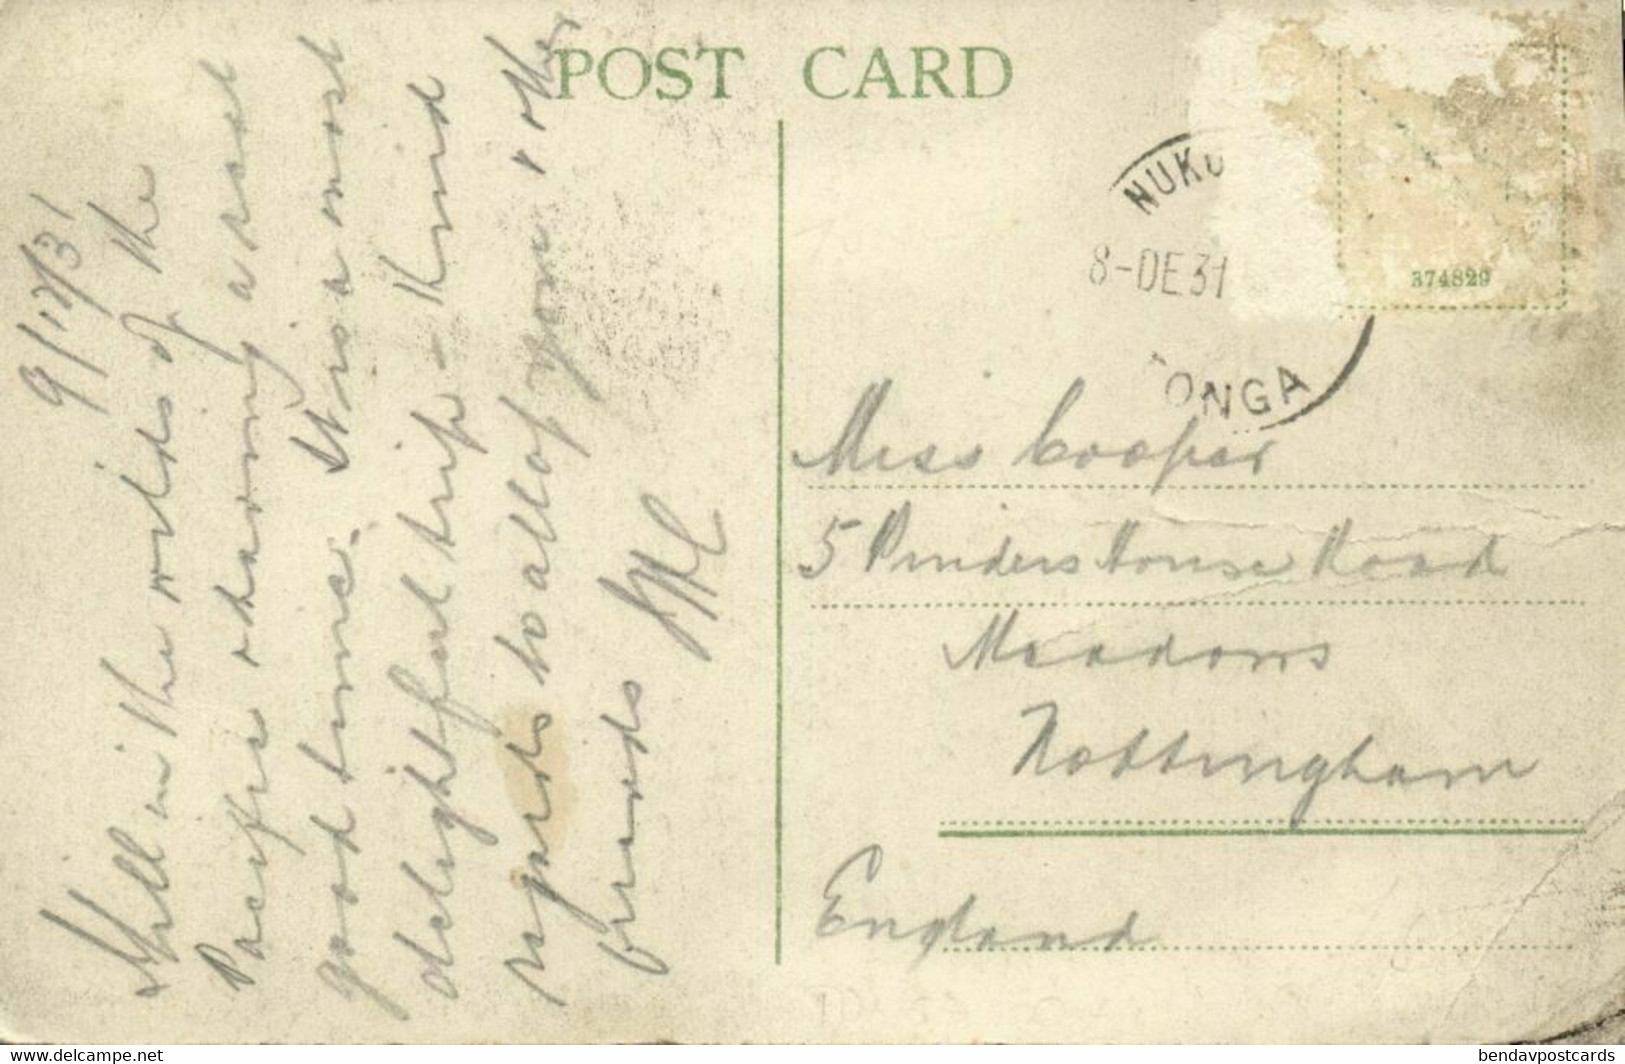 POST CARD
374829
NUKU
8-DE31
TONGA
9/12/31
Still in the wilds of the
Pacific & having a real
good time. It is a most
delightful trip - Kind
regards to all of you & other
friends
Miss Cooper
5 Pinders House Road
Meadows
Nottingham
England
www.delcampe.net
bendavpostcards